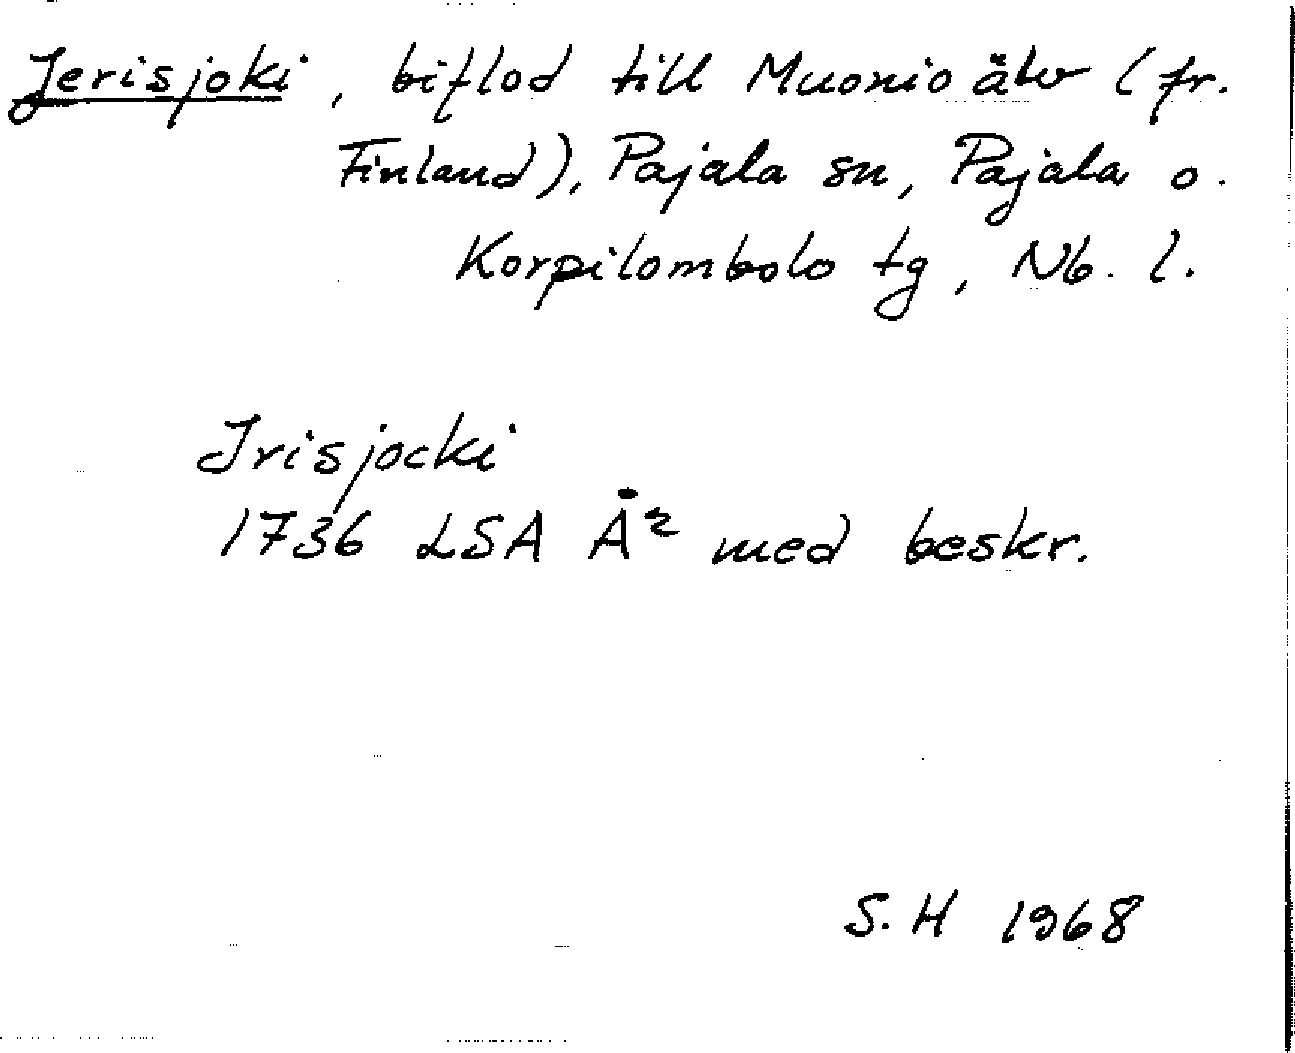 Jerisjoki, biflod till Muonio älv (fr.
Finland), Pajala sn, Pajala o.
Korpilombolo tg, Nb. l.
Irisjocki
1736 LSA Å² med beskr.
S.H 1968